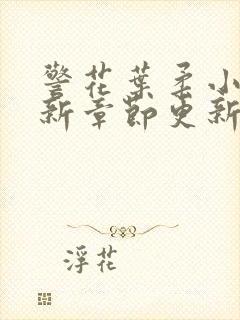 警花葉柔小
新章節更新
浮花